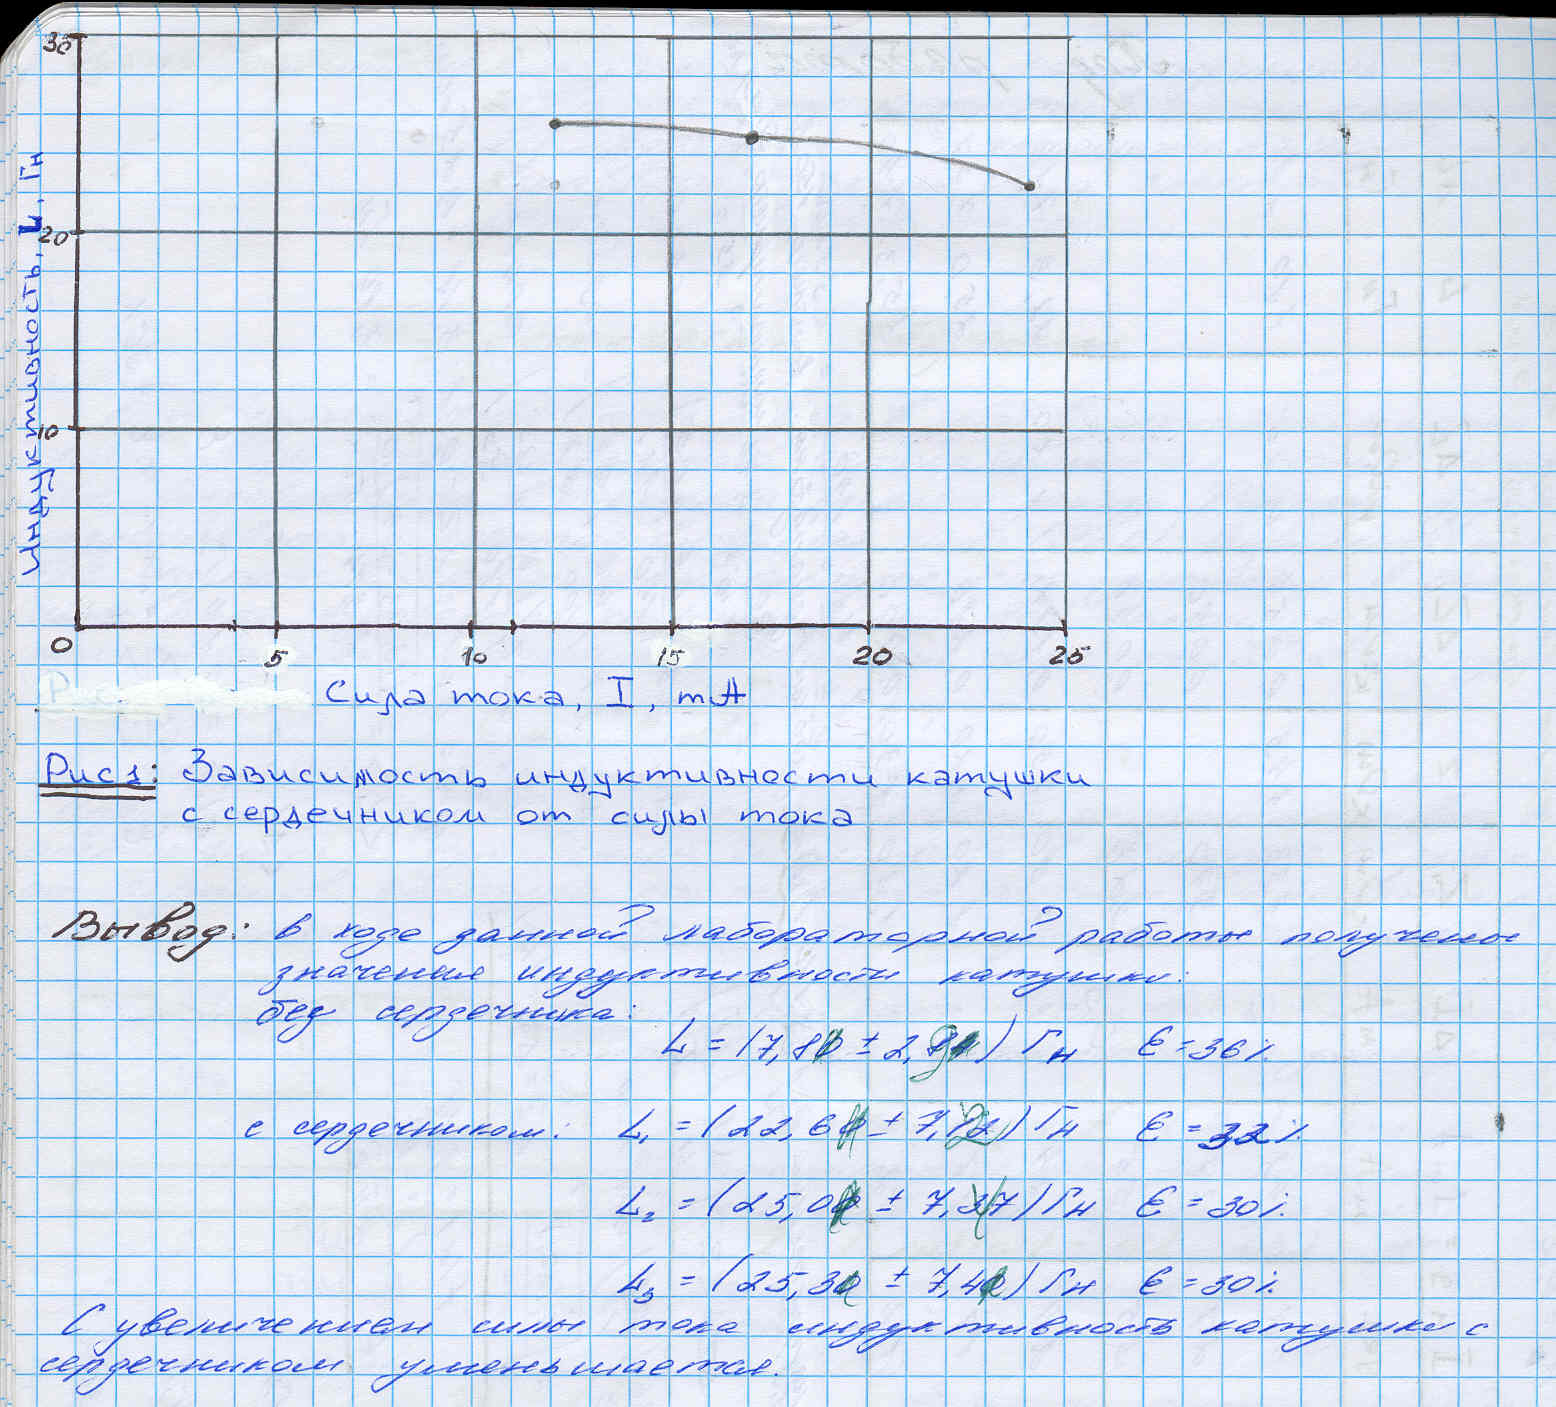 30
20
10
0
5 10 15 20 25
Индуктивность, L, Гн
Сила тока, I, mA
Рис 1: Зависимость индуктивности катушки
с сердечником от силы тока
Вывод: в ходе данной лабораторной работы получены
значения индуктивности катушки:
без сердечника:
L = (7,8 ± 2,8) Гн ε = 36%
с сердечником: L₁ = (22,6 ± 7,2) Гн ε = 32%
L₂ = (25,0 ± 7,37) Гн ε = 30%
L₃ = (25,3 ± 7,4) Гн ε = 30%
С увеличением силы тока индуктивность катушки с
сердечником уменьшается.